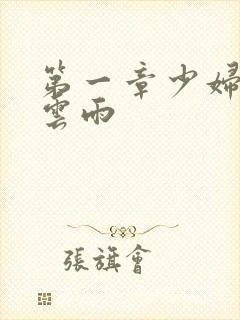 第一章少婦
雲雨
張旗會